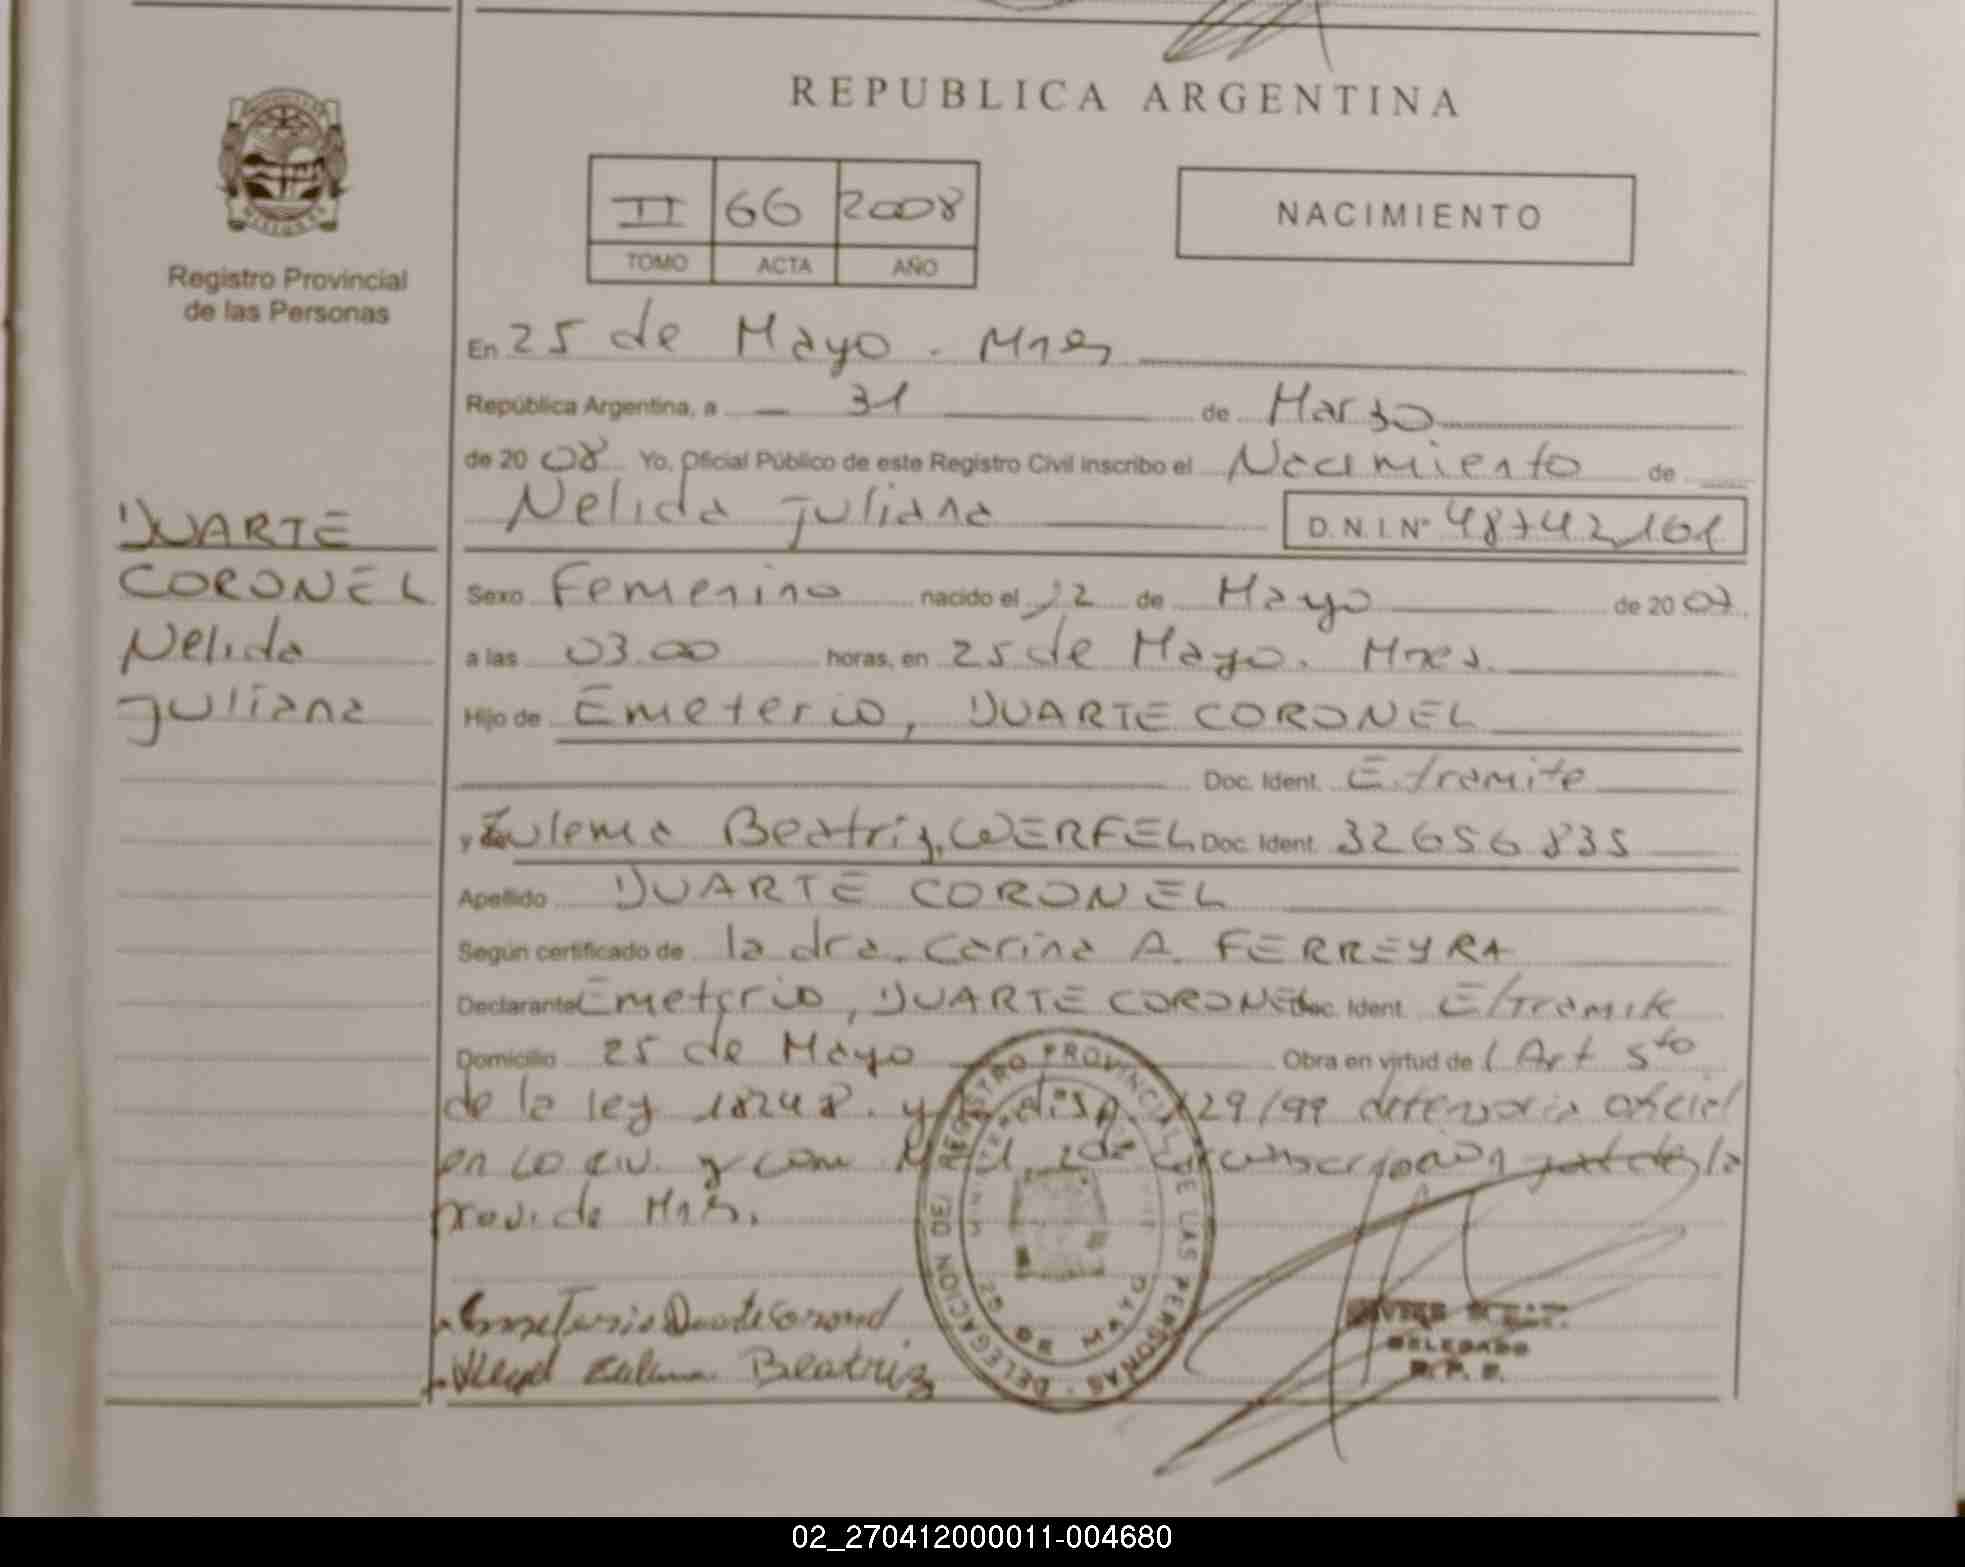 REPUBLICA ARGENTINA
II 66 2008
TOMO ACTA AÑO
NACIMIENTO
Registro Provincial
de las Personas
DUARTE
CORONEL
Nelida
Juliana
En 25 de Mayo. Mnes
República Argentina, a 31 de Marzo
de 20 08 Yo, Oficial Público de este Registro Civil inscribo el Nacimiento de
Nelida Juliana D.N.I. Nº 48742161
Sexo Femenino nacido el 12 de Mayo de 20 07
a las 03.00 horas, en 25 de Mayo. Mnes.
Hijo de Emeterio, DUARTE CORONEL
Doc. Ident. E. tramite
y Zulema Beatriz, WERFEL Doc. Ident. 32656835
Apellido DUARTE CORONEL
Según certificado de la dra. Carina A. FERREYRA
Declarante Emeterio, DUARTE CORONEL Doc. Ident. E/Tramite
Domicilio 25 de Mayo Obra en virtud de l Art 5to
de la ley 18248. y disp. 129/99 defensoria oficial
en lo civ. y com 2da circunscripción de la
prov. de Mnes.
Emeterio Duarte Coronel
Zulema Beatriz
DELEGACION DEL REGISTRO PROVINCIAL DE LAS PERSONAS
25 DE MAYO
DELEGADO
R. P. P.
02_270412000011-004680